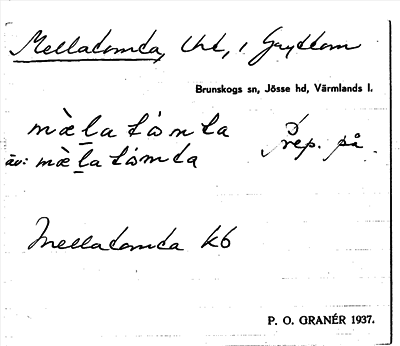 Mellatomta, Uht, i Gryttom
Brunskogs sn, Jösse hd, Värmlands l.
mæ̀l̲a tȯnta Prep. på.
äv: mæ̀l̲a tȯmta
Mellatomta kb
P. O. GRANÉR 1937.